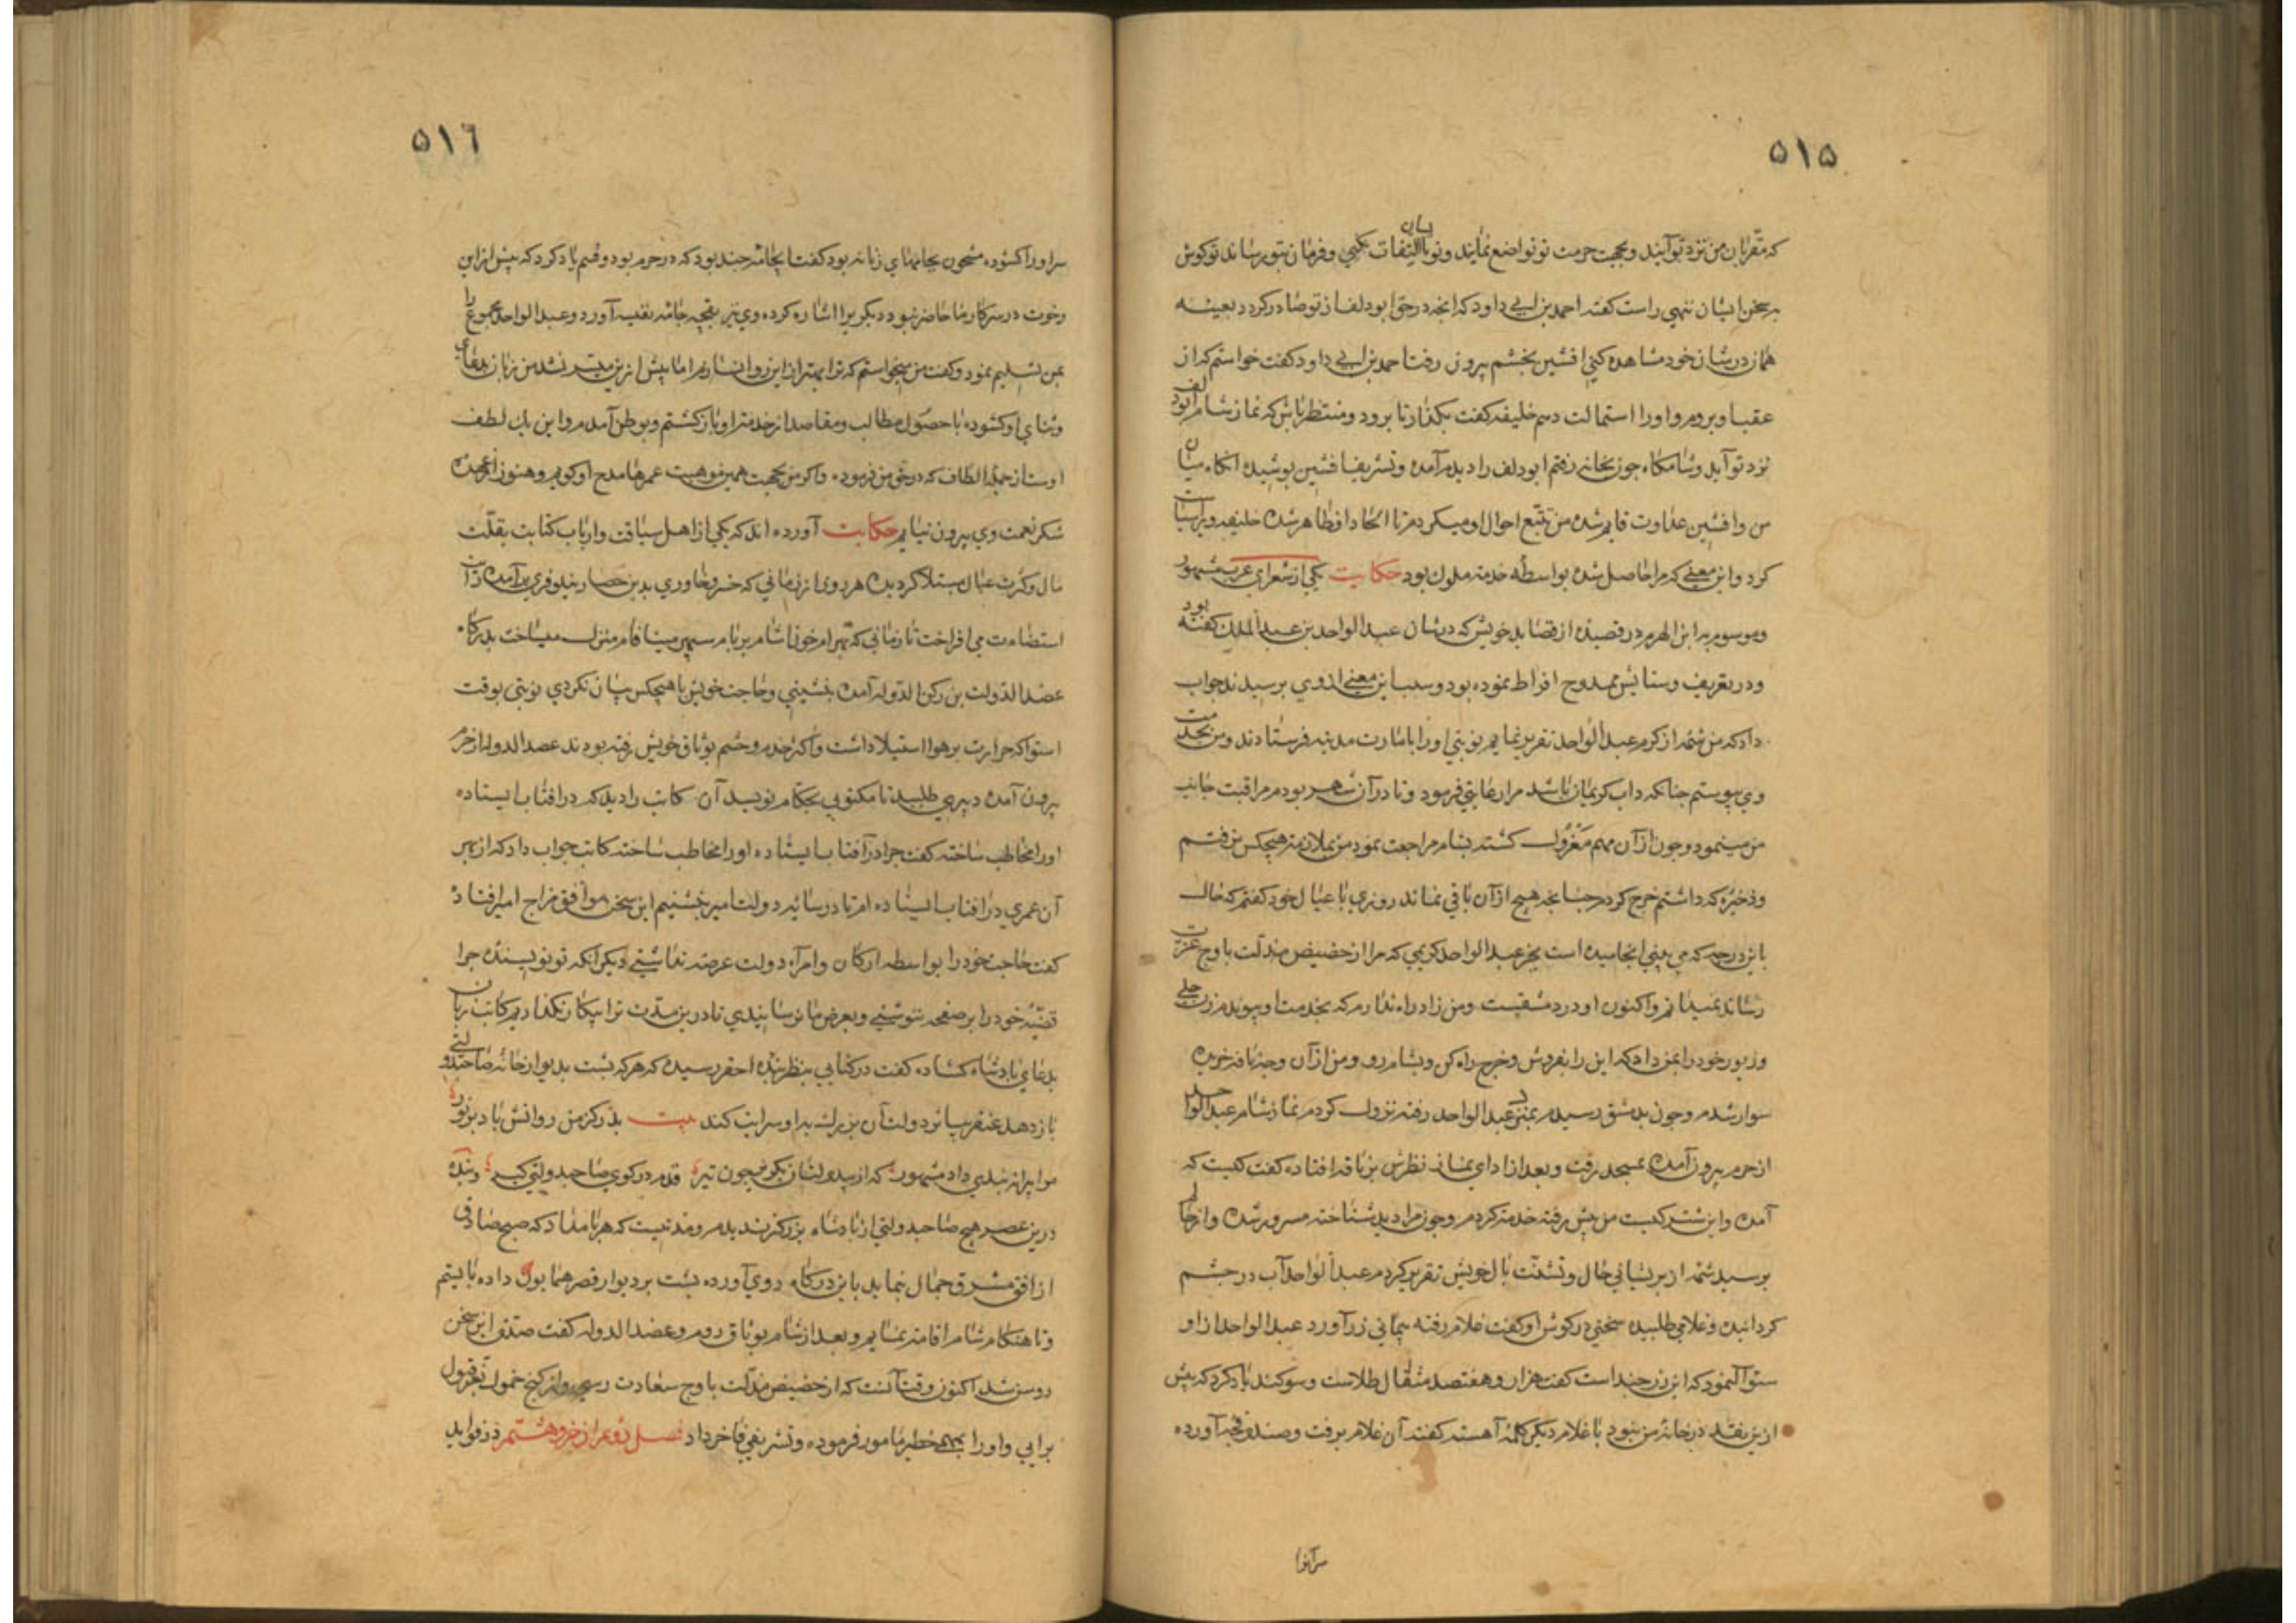 ۵۱۵
که مقربان من نزد تو آیند و بجهت حرمت تو تواضع نمایند و تو بایشان التفات نکنی و فرمان بتو رسانند تو کوش
بر سخن ایشان ننهی راست کفته احمد بن ابی داود که انجه در حق ابودلف از تو صادر کردد بعینه
همان در شان خود مشاهده کنی افشین بخشم بیرون رفت احمد بن ابی داود کفت خواستم که از
عقب او بروم و او را استمالت دهم خلیفه کفت بکذار تا برود و منتظر باش که نماز شام ابودلف
نزد تو آید و شامکاه جون بخانه رفتم ابودلف را دیدم آمده و تشریف افشین بوشیده انکاه میان
من و افشین عداوت قایم شده من تتبع احوال او میکردم تا الحاد او ظاهر شده خلیفه ویرا سیاست
کرد و این معنی که مرا حاصل شده بواسطه خدمت ملوک بود حکایت یکی از شعرای عرب مشهور
و موسوم به ابن الهرم در قصیده از قصاید خویش که در شان عبد الواحد بن عبد الملک کفته بود
و در تعریف و ستایش ممدوح افراط نموده بود و سبب این معنی از وی برسیدند جواب
داد که من شمه از کرم عبد الواحد تقریر نمایم نوبتی او را بامارت مدینه فرستادند و من بخدمت
وی بیوستم جنانکه داب کریمان باشد مرا رعایتی فرمود و تا در آن شهر بودم مراقبت جانب
من مینمود و جون از آن مهم معزول کشته بشام مراجعت نمود من بملازمت هیچکس نرفتم
و ذخیره که داشتم خرج کردم جنانجه هیچ از آن باقی نماند روزی با عیال خود کفتم که حال
باین درجه که می بینی انجامیده است بجز عبد الواحد کریمی که مرا از حضیض مذلت باوج عزت
رساند نمیدانم و اکنون او در دمشقست و من زاد راه ندارم که بخدمت او بیوندم زن حلی
و زیور خود را بمن داد که این را بفروش و خرج راه کن و بشام رو و من از آن وجه ناقه خریده
سوار شدم و جون بدمشق رسیدم بمنزل عبد الواحد رفته نزول کردم نماز شام عبد الواحد
از حرم بیرون آمده بمسجد رفت و بعد از ادای نماز نظرش بر ناقه افتاده کفت کیست که
آمده و این شتر کیست من بیش رفته خدمت کردم و جون مرا دید شناخته مسرور شده و از حالم
برسید شمه از بریشانی حال و تشتت بال خویش تقریر کردم عبد الواحد آب در جشم
کردانیده و غلامی طلبیده سخنی در کوش او کفت غلام رفته همیانی زر آورد عبد الواحد از او
سئوال نمود که این زر جند است کفت هزار و هفتصد مثقال طلاست و سوکند یاد کرد که بیش
ازین نقد در خانه من نبود با غلام دیکر کلمه آهسته کفت آن غلام برفت و صندوقجه آورده
سر آنرا
۵۱٦
سر او را کشوده مشحون بجامهای زنانه بود کفت این جامه جند بود که در حرم بود و قسم یاد کرد که بیش از این
رخوت در سرکار ما حاضر نبود دیکری را اشاره کرده وی نیز بقجه جامه نفیسه آورد و عبد الواحد مجموع را
بمن تسلیم نمود و کفت من میخواستم که ترا بهتر از این روانه سازم اما بیش ازین میسر نشد من زبان بدعای
و ثنای او کشوده با حصول مطالب و مقاصد از خدمت او باز کشتم و بوطن آمدم و این یک لطف
اوست از جمله الطاف که در حق من فرموده و اکر من بجهت همین موهبت عمرها مدح او کویم و هنوز از عهده
شکر نعمت وی بیرون نیایم حکایت آورده اند که یکی از اهل سیاقت و ارباب کتابت بقلت
مال و کثرت عیال مبتلا کردیده هر روز از زمانی که خسرو خاوری بدین حصار نیلوفری برآمده رایت
استضاءت می افراخت تا زمانی که بهرام خون اشام بر بام سبهر مینا فام منزل میساخت بدرکاه
عضد الدولت بن رکن الدوله آمده بنشینی و حاجت خویش با هیچکس بیان نکردی نوبتی بوقت
استوا که حرارت بر هوا استیلا داشت و اکثر خدم و حشم بوثاق خویش رفته بودند عضد الدوله از حرم
بیرون آمده دبیری طلبید تا مکتوبی بحکام نویسد آن کاتب را دید که در افتاب ایستاده
او را مخاطب ساخته کفت جرا در آفتاب ایستاده او را مخاطب ساخته کاتب جواب داد که از بهر
آن عمری در افتاب ایستاده ام تا در سایه دولت امیر بنشینم این سخن موافق مزاج امیر افتاد
کفت حاجت خود را بواسطه ارکان و امرآء دولت عرضه نداشتی دیکر انکه تو نویسنده جرا
قضیه خود را بر صفحه ننوشتی و بعرض ما نرسانیدی تا درین مدت ترا بیکار نکذاریم کاتب زبان
بدعای بادشاه کشاده کفت در کتابی بنظر بنده احقر رسیده که هر که بشت بدیوار خانه صاحب دولتی
باز دهد عنقریب اثر دولت آن بزرک به او سرایت کند بیت بدر کز من روانش باد بر نور
مرا بیرانه بندی داد مشهور که از بیدولتان بکریز جون تیر قدم در کوی صاحبدولتی کیر و بنده
درین عصر هیچ صاحبدولتی از بادشاه بزرکتر ندیدم و مدتیست که هر بامداد که صبح صادق
از افق مشرق جمال نماید باین درکاه روی آورده بشت بر دیوار قصر همایون داده بایستم
و تا هنکام شام اقامت نمایم و بعد از شام بوثاق روم و عضد الدوله کفت صدق این سخن
روشن شد اکنون وقت آنست که از حضیض مذلت باوج سعادت رسی و از کنج خمول بعز قبول
برایی و او را بمهمی خطیر مامور فرموده و تشریفی فاخر داد فصل دویم از جزو هشتم در فواید